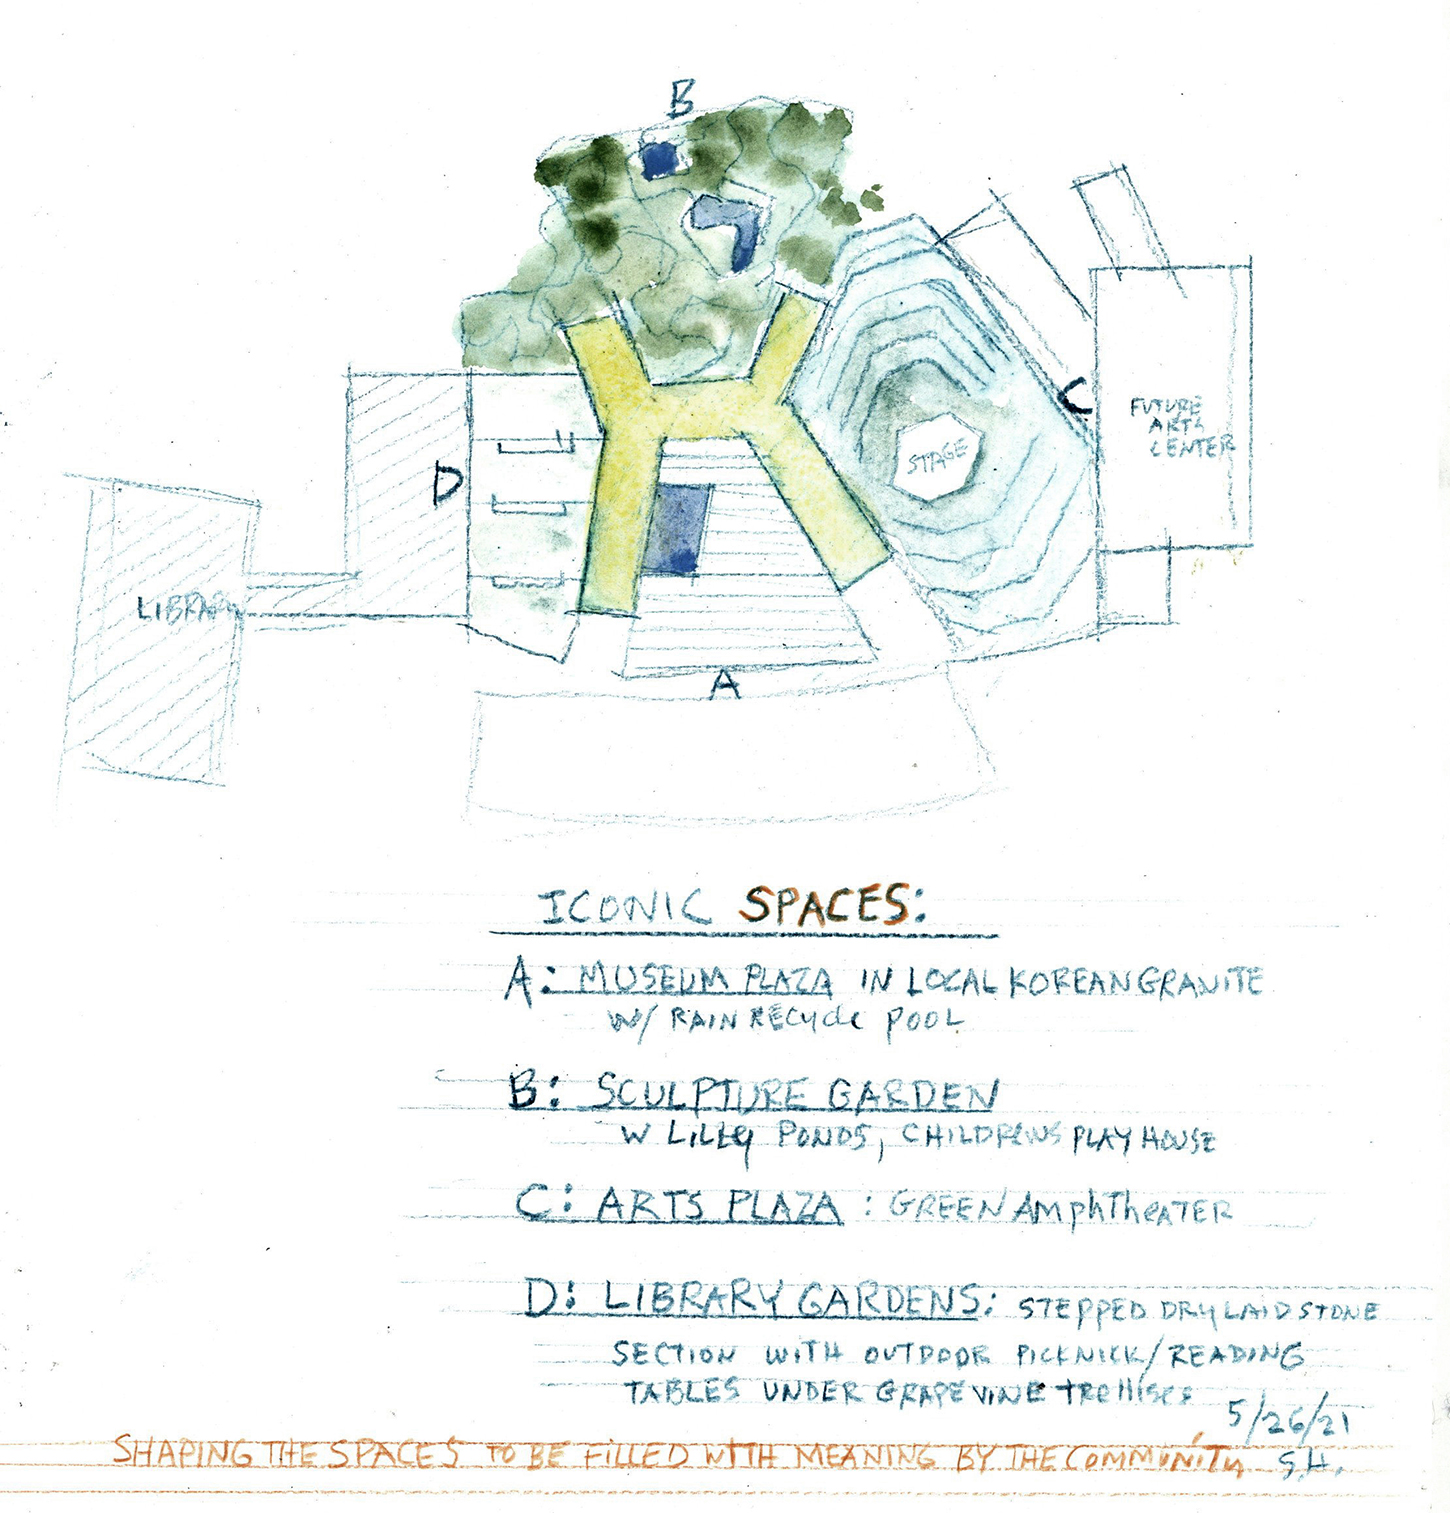 B
C
FUTURE
ARTS
CENTER
STAGE
D
LIBRARY
A
ICONIC SPACES:
A: MUSEUM PLAZA IN LOCAL KOREAN GRANITE
W/ RAIN RECYCLE POOL
B: SCULPTURE GARDEN
W LILLY PONDS, CHILDRENS PLAY HOUSE
C: ARTS PLAZA : GREEN AMPHTHEATER
D: LIBRARY GARDENS: STEPPED DRY LAID STONE
SECTION WITH OUTDOOR PICKNICK/READING
TABLES UNDER GRAPEVINE TRELLISES
5/26/21
SHAPING THE SPACES TO BE FILLED WITH MEANING BY THE COMMUNITY S.H.